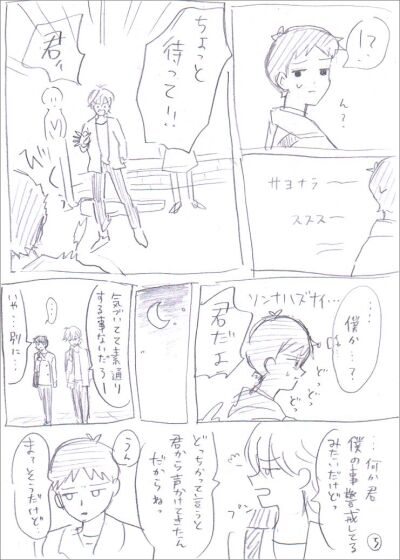 !?
ん?
サヨナラ
スススー
ちょっと
待って!!
君ぃ
…僕が…?
ソンナハズナイ…
どっ
どっ
どっ
君だよ
気づいてて素通り
する事ないだろー
…
いや…別に…
…何か君
僕の事警戒してる
みたいだけどっ
どっちかって言うと
君から声かけてきたん
だからねっ
うん
まぁそうだけど
5